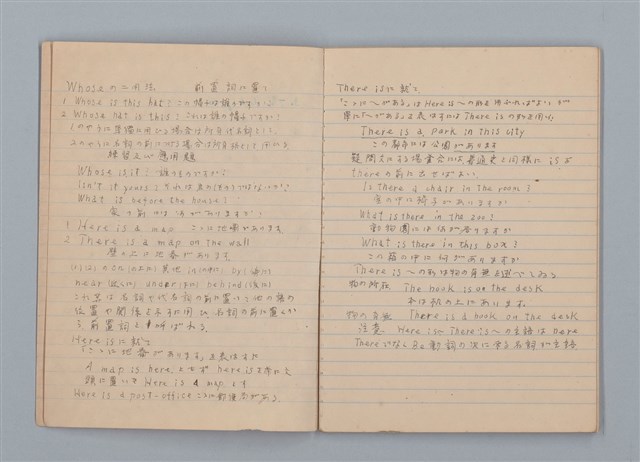 Whoseの二用法　前置詞に就て
1 Whose is this hat? この帽子は誰のですか?
2 Whose hat is this? これは誰の帽子ですか?
1のやうに単独に用ひる場合は所有代名詞といひ
2のやうに名詞の前につける場合は所有格として用ひる
練習及び應用題
Whose is it? 誰のものですか?
Isn't it yours? それはあなたのではないか?
What is before the house?
家の前には何がありますか?
1 Here is a map ここに地圖があります
2 There is a map on the wall
壁の上に地圖があります
near (近くに) under (下に) behind (後に)
これ等は名詞や代名詞の前に置いて他の語の
位置や関係を示すに用ひ名詞の前に置くか
ら前置詞と呼ばれる
Here isに就て
「ここに地圖があります」を表はすに
A map is here とせず here is を常に文
頭に置いて Here is a map とす
Here is a post-office ここに郵便局がある
There isに就て
「ここに〜がある」は Here is 〜の形を用ふればよいが
単に「〜がある」を表はすには There is の形を用ふ
There is a park in this city
この都市には公園があります
疑問文にする場合には普通文と同様に is を
thereの前に出せばよい
Is there a chair in the room?
室の中に椅子がありますか
What is there in the zoo?
動物園には何が居りますか
What is there in this box?
この箱の中に何がありますか
There is 〜の形は物の有無を述べてゐる
物の所在 The book is on the desk
本は机の上にあります
物の有無 There is a book on the desk
注意 Here is〜 There is〜の主語は here
Thereでなく Be動詞の次に来る名詞が主語